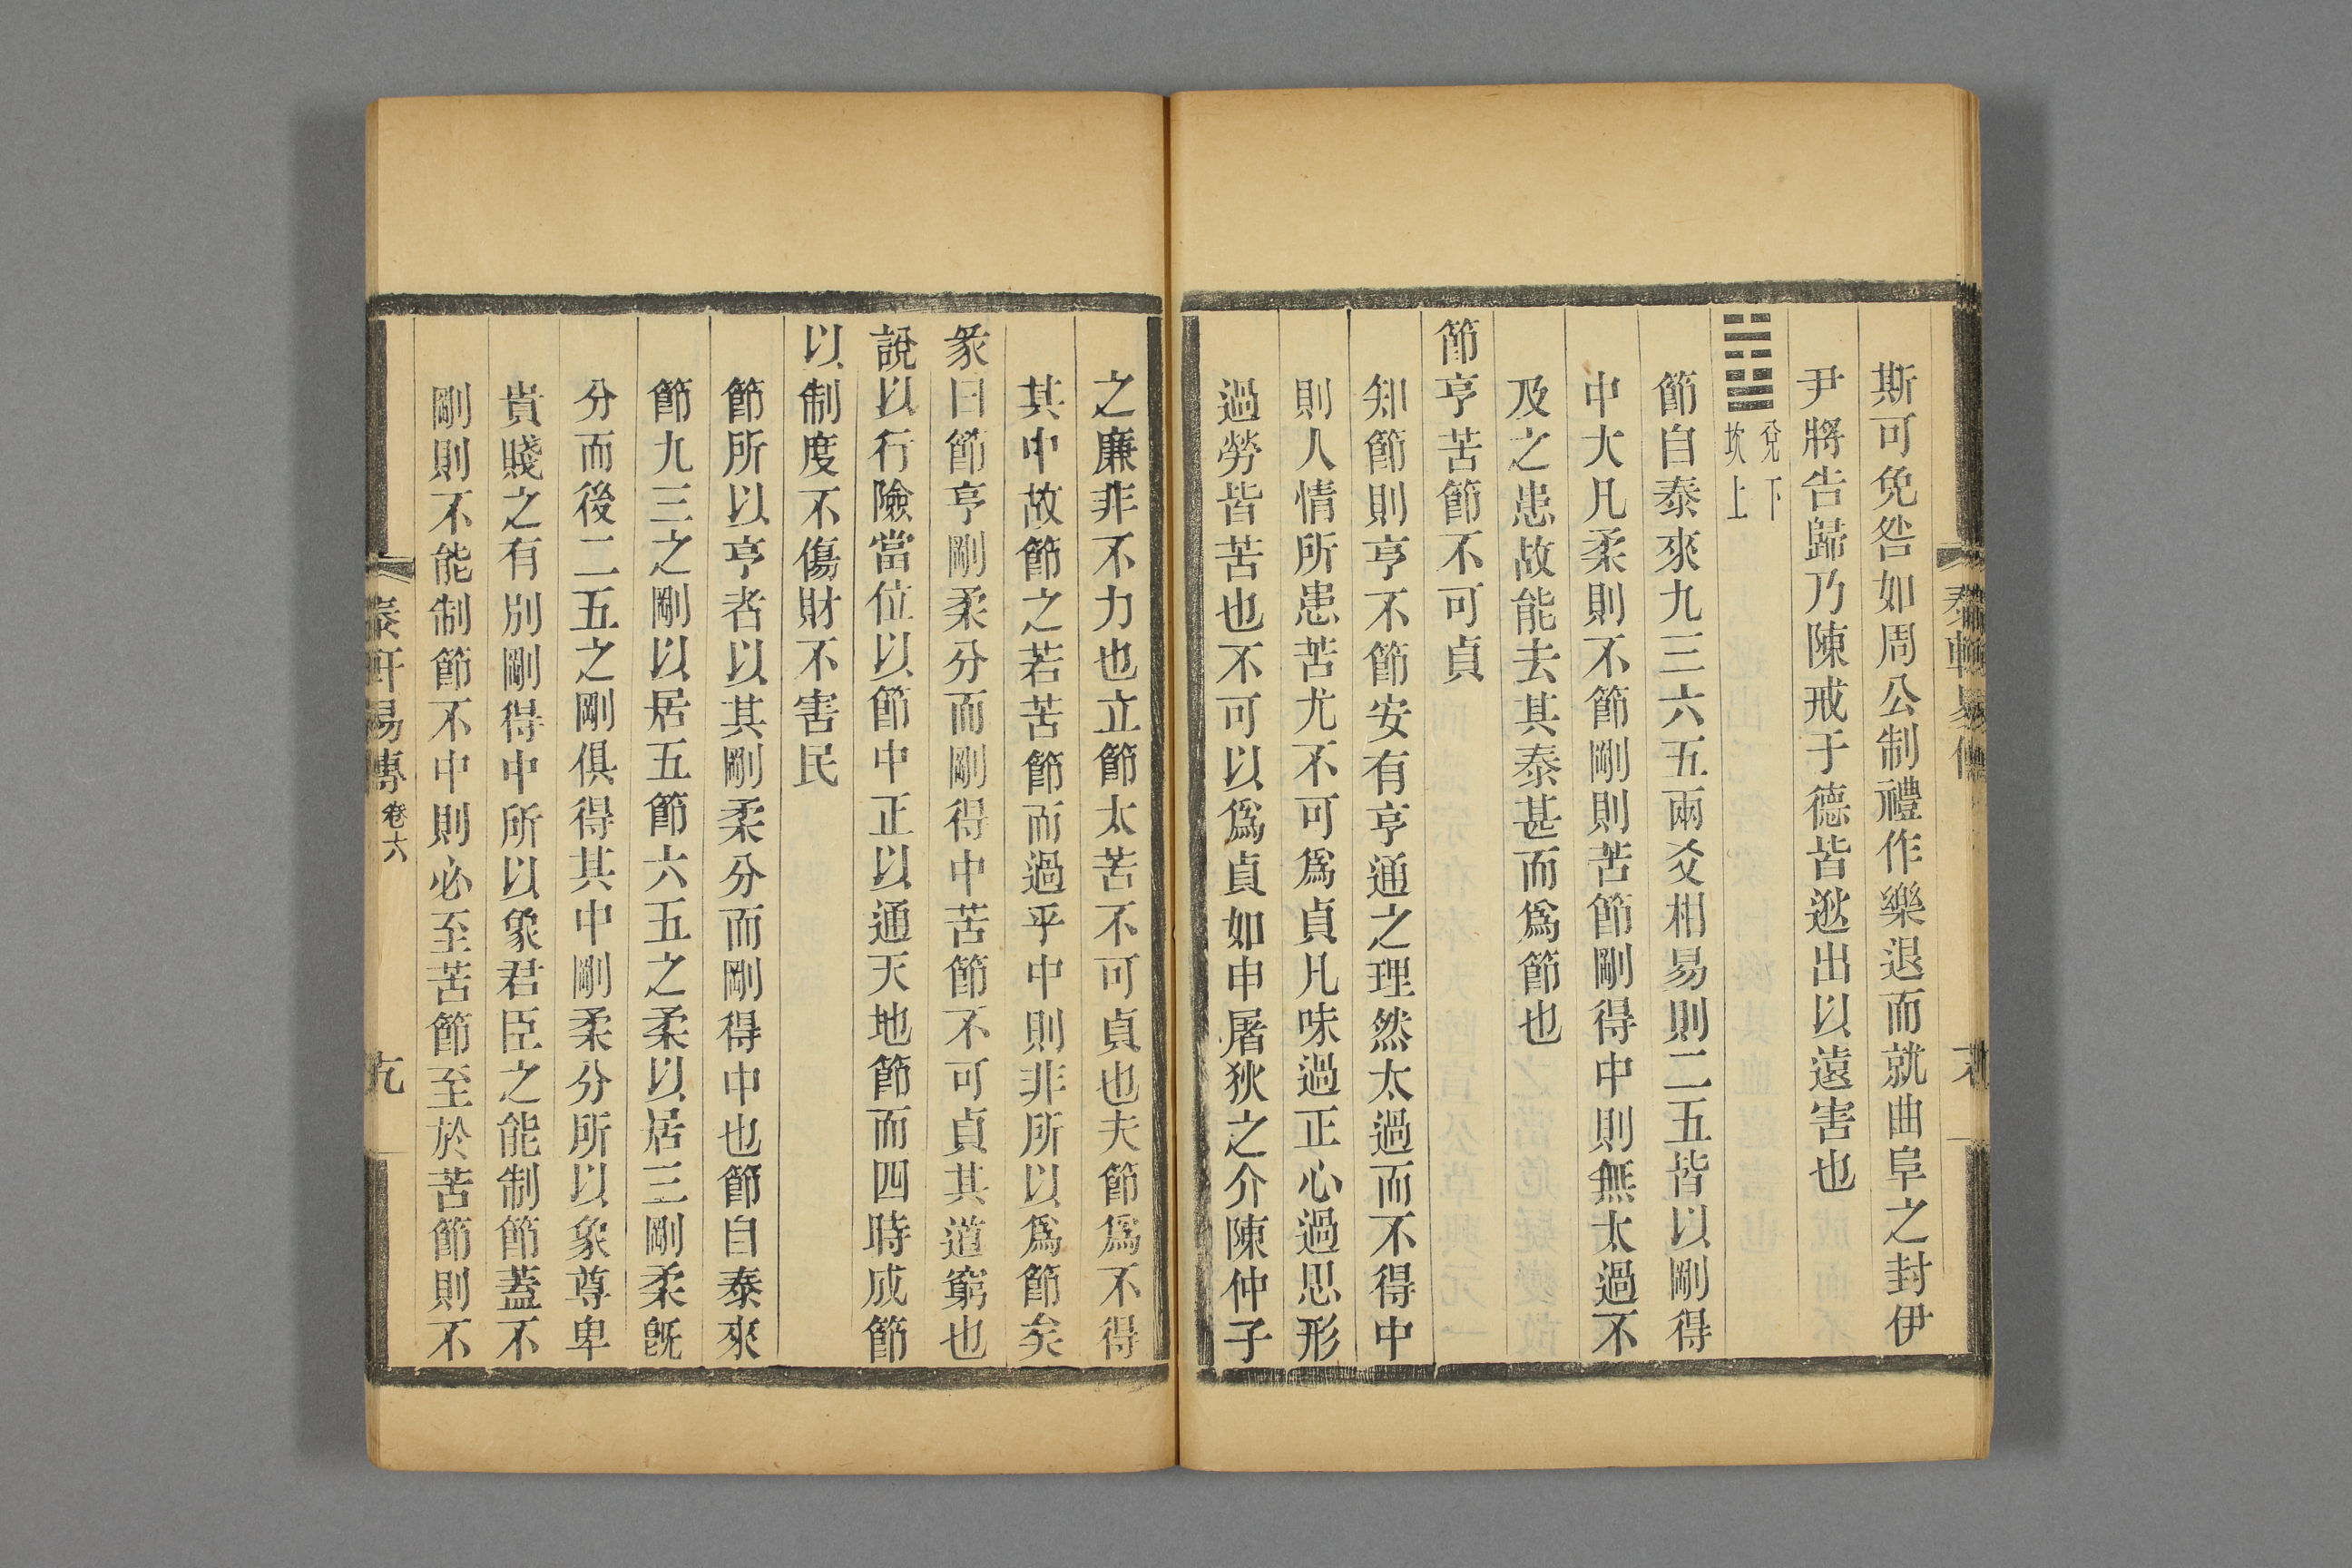 斯可免咎如周公制禮作樂退而就曲阜之封伊
尹將告歸乃陳戒于德皆逖出以遠害也
兌下
坎上
節自泰來九三六五兩爻相易則二五皆以剛得
中大凡柔則不節剛則苦節剛得中則無太過不
及之患故能去其泰甚而爲節也
節亨苦節不可貞
知節則亨不節安有亨通之理然太過而不得中
則人情所患苦尤不可爲貞凡味過正心過思形
過勞皆苦也不可以爲貞如申屠狄之介陳仲子
之廉非不力也立節太苦不可貞也夫節爲不得
其中故節之若苦節而過乎中則非所以爲節矣
彖曰節亨剛柔分而剛得中苦節不可貞其道窮也
說以行險當位以節中正以通天地節而四時成節
以制度不傷財不害民
節所以亨者以其剛柔分而剛得中也節自泰來
節九三之剛以居五節六五之柔以居三剛柔既
分而後二五之剛俱得其中剛柔分所以象尊卑
貴賤之有別剛得中所以象君臣之能制節蓋不
剛則不能制節不中則必至苦節至於苦節則不
泰軒易傳 卷六